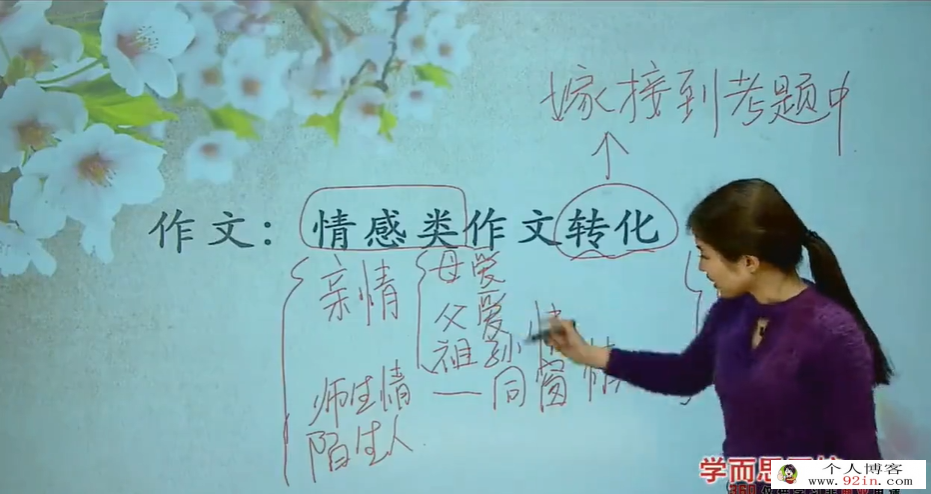 嫁接到考题中
作文：情感类作文转化
亲情 母爱
父爱
祖孙情
师生情 — 同窗情
陌生人
学而思
个人博客
www.92in.com